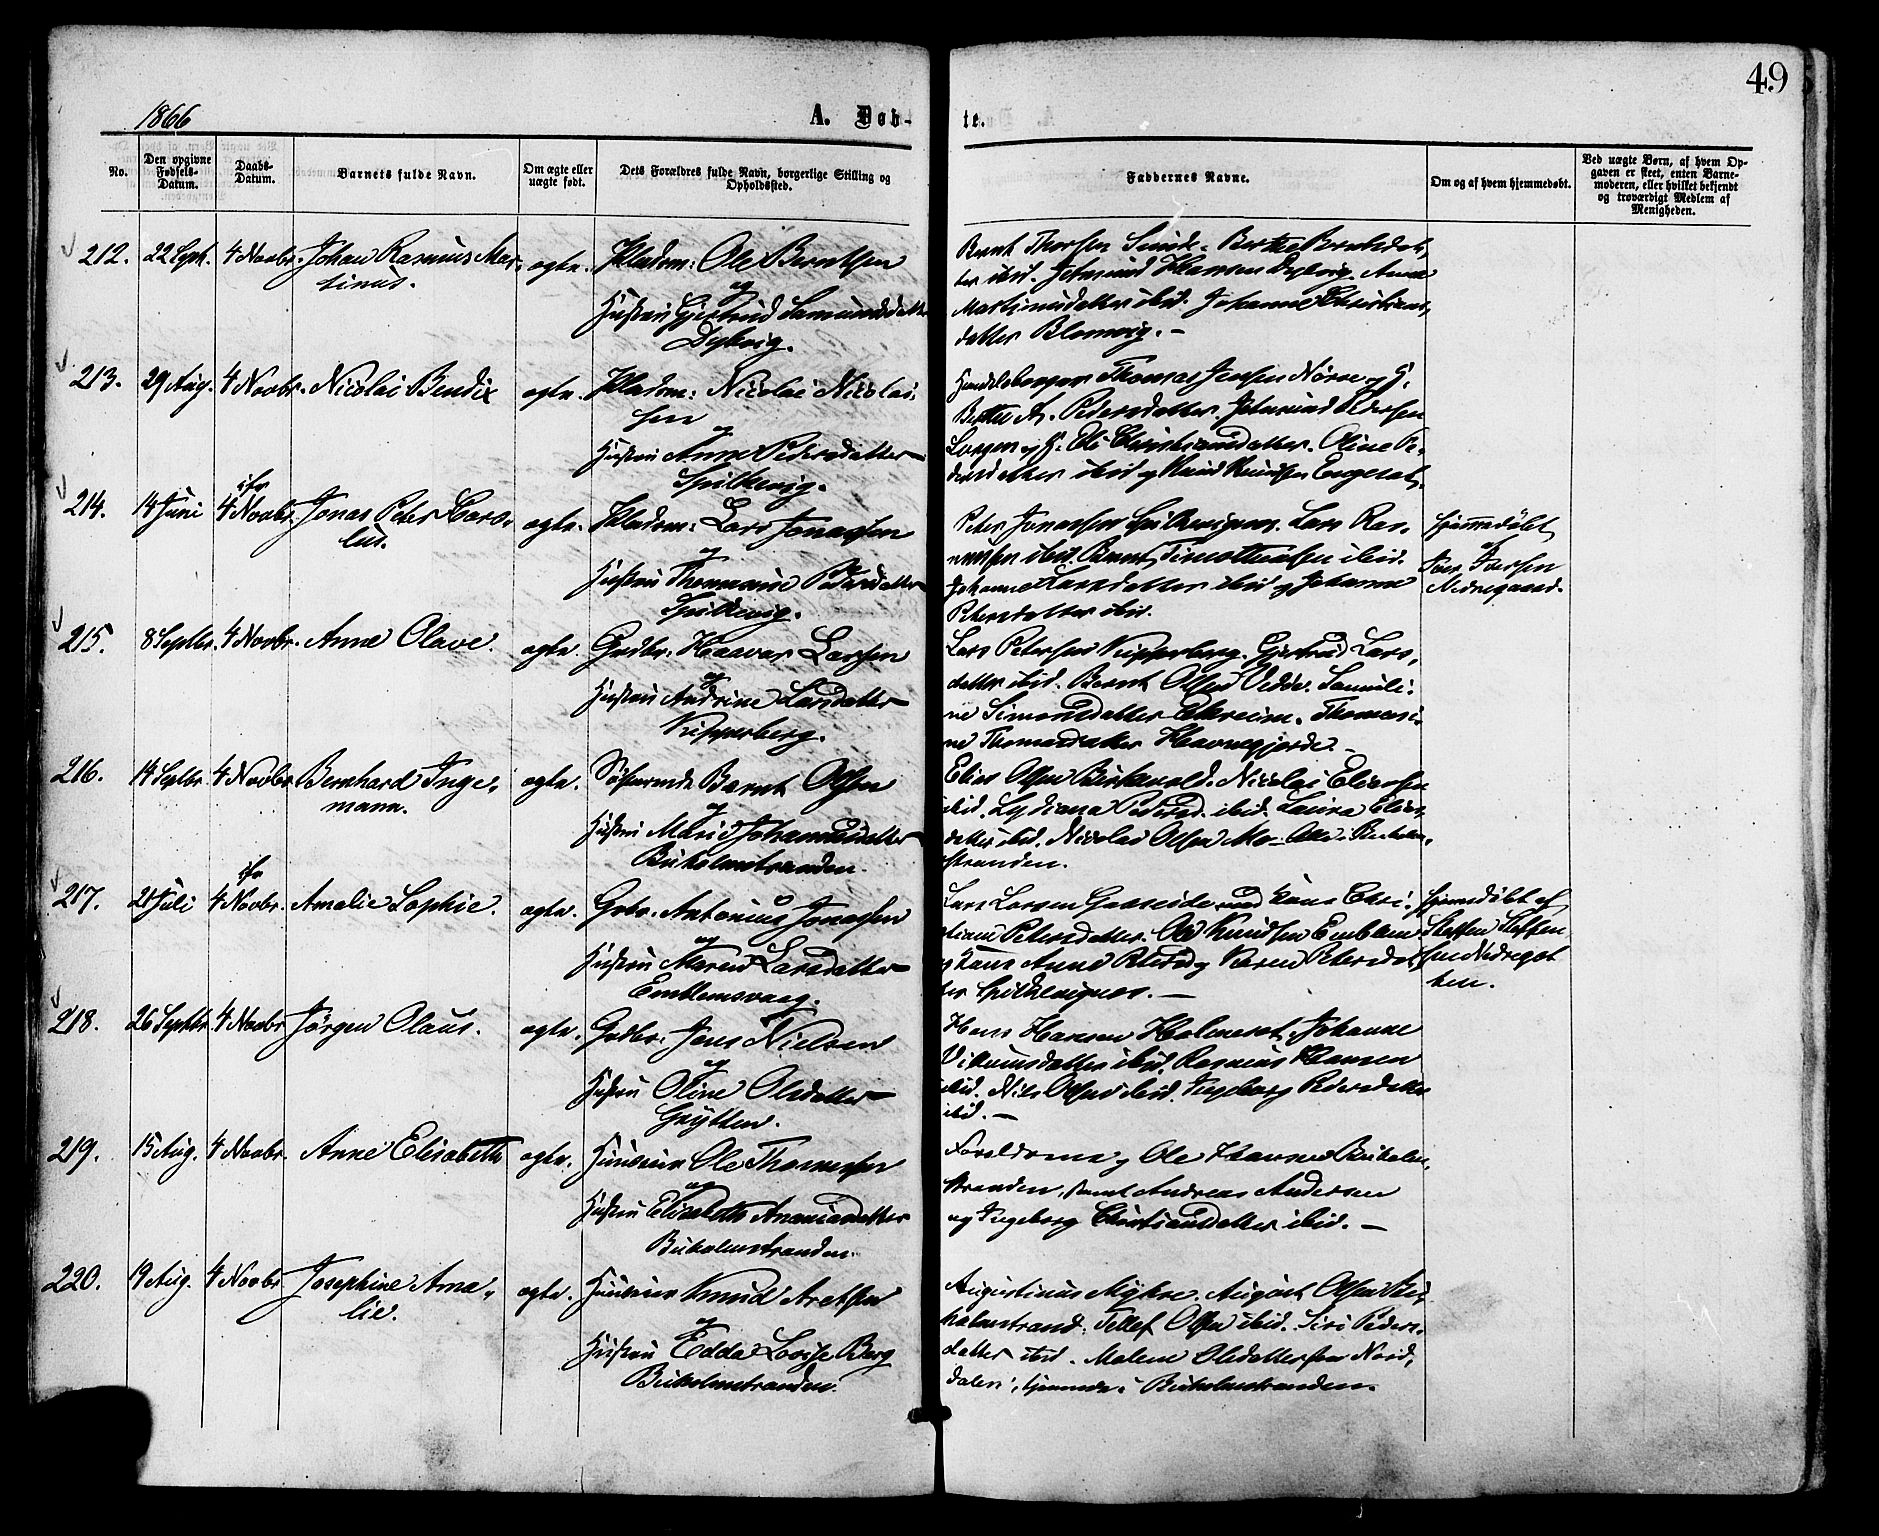 49
1866
A. Døb-
te.
No.
Den opgivne Fødsels-Datum.
Daabs-Datum.
Barnets fulde Navn.
Om ægte eller uægte født.
Dets Forældres fulde Navn, borgerlige Stilling og Opholdssted.
Faddernes Navne.
Om og af hvem hjemmedøbt.
Ved uægte Børn, af hvem Op-
gaven er skeet, enten Barne-
moderen, eller hvilket bekjendt
og troværdigt Medlem af
Menigheden.
212. 22 Sept. 4 Novbr. Johan Rasmus Mar-
tinus.
ægte. Pladsm: Ole Berntsen
og
Hustru Gjertrud Samundsdatter
Dybvig.
Bernt Thorsen Sunde. Berthe Berntsdat-
ter ibid. Jetmund Hansen Dybvig. Anne
Martinusdatter ibid. Johanne Christians-
datter Blomvig. –
213. 29 Aug. 4 Novbr. Nicolai Bendix
ægte. Pladsm: Nicolai Nicolai-
sen
og
Hustru Anne Pedersdatter
Spilkevig.
Thomas Jensen Nørve og H.
Berthe A. Pedersdatter. Jetmund Pedersen
og H. Christiansdatter. Oline Pe-
dersdatter ibid og Knud Knudsen Engeset.
214. 14 Juni 4 Novbr. Jonas Peter Caro-
lus.
ægte. Pladsm: Lars Jonassen
og
Hustru Thommine Pedersdatter
Spilkevig.
Peter Jonassen Spilkevignes. Lars Ras-
mussen ibid. Bernt Timotheussen ibid.
Johanne Larsdatter ibid og Johanne
Petersdatter ibid.
Hjemmedøbt
af
Iver Iversen
Nedregaard.
215. 8 Septbr. 4 Novbr. Anne Olave.
ægte. Grdbr. Haavar Larsen
og
Hustru Andrine Larsdatter
Kipperberg.
Lars Petersen Kipperberg. Gjertrud Lars-
datter ibid. Bernt Olsen Vedde. Samuli-
ne Simonsdatter Ekreim. Thomasi-
ne Thomasdatter Havnegjerde. –
216. 14 Septbr. 4 Novbr. Bernhard Inge-
mann.
ægte. Søfarende Bernt Olsen
og
Hustru Marie Johannesdatter
Buholmstranden.
Elias Olsen Buholm. Nicolai Eliassen
ibid. Lydiana Pedersd. ibid. Laura Elias-
datter ibid. Nicolai Olsen Mo. Alle i Buholm-
stranden.
217. 21 Juli 4 Novbr. Amalie Sophie.
ægte. Grbr. Antonius Jonassen
og
Hustru Maren Larsdatter
Emblemsvaag.
Lars Larsen Gaaseide med Kone Chri-
stiane Petersdatter. Ole Knudsen Emblem
og Kone Anne Petersd og Karen Petersdat-
ter Spilkevignes. –
Hjemmedøbt af
Steffen Steffen-
sen Nedregot-
ten.
218. 26 Septbr 4 Novbr Jørgen Olaus.
ægte. Grdbr. Jens Nielsen
og
Hustru Oline Olsdatter
Grytten.
Hans Hansen Holmeset, Johanne
ibid. Rasmus Hansen
ibid. Nils Olsen ibid. Ingeborg Pedersdatter
ibid. –
219. 15 Aug. 4 Novbr. Anne Elisabeth
ægte. Huuseier Ole Thomassen
og
Hustru Elisabeth Ananiasdatter
Buholmstranden.
Forældrene og Ole Hansen Buholm-
stranden, samt Andreas Andersen
og Ingeborg Christiansdatter ibid. –
220. 19 Aug. 4 Novbr Josephine Ama-
lie.
ægte. Huuseier Knud Aretsen
og
Hustru Edda Lovise Berg
Buholmstranden.
Augustinus Myhre. August Olsen Bu-
holmstrand. Tellef Olsen ibid. Siri Peders-
datter ibid. Malene Olsdatter fra Nord-
dalen, tjenende i Buholmstranden.